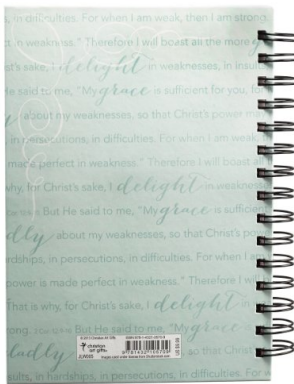 in difficulties. For when I am weak, then I am strong.
in weakness." Therefore I will boast all the more
st's sake, I delight in weaknesses, in insul
He said to me, "My grace is sufficient for you, for
about my weaknesses, so that Christ's power may
in persecutions, in difficulties. For when I am weak
made perfect in weakness." Therefore I will boast all
why, for Christ's sake, I delight in weakness
But He said to me, "My grace is sufficien
dly about my weaknesses, so that Christ's
rdships, in persecutions, in difficulties. For when I am
power is made perfect in weakness." Therefore I
That is why, for Christ's sake, I delight in
ong. But He said to me, "My
ladly
ults, in hardships, in persecutions, in difficulties. For when I